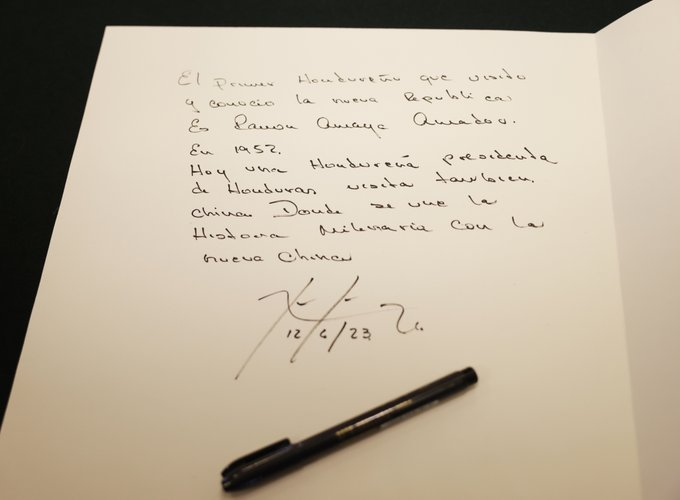 El primer Hondureño que visito
y conocio la nueva Republica
Es Ramon Amaya Amador.
En 1952.
Hoy una Hondureña presidenta
de Honduras visita tambien.
china Donde se une la
Historia Milenaria con la
nueva China
12/6/23